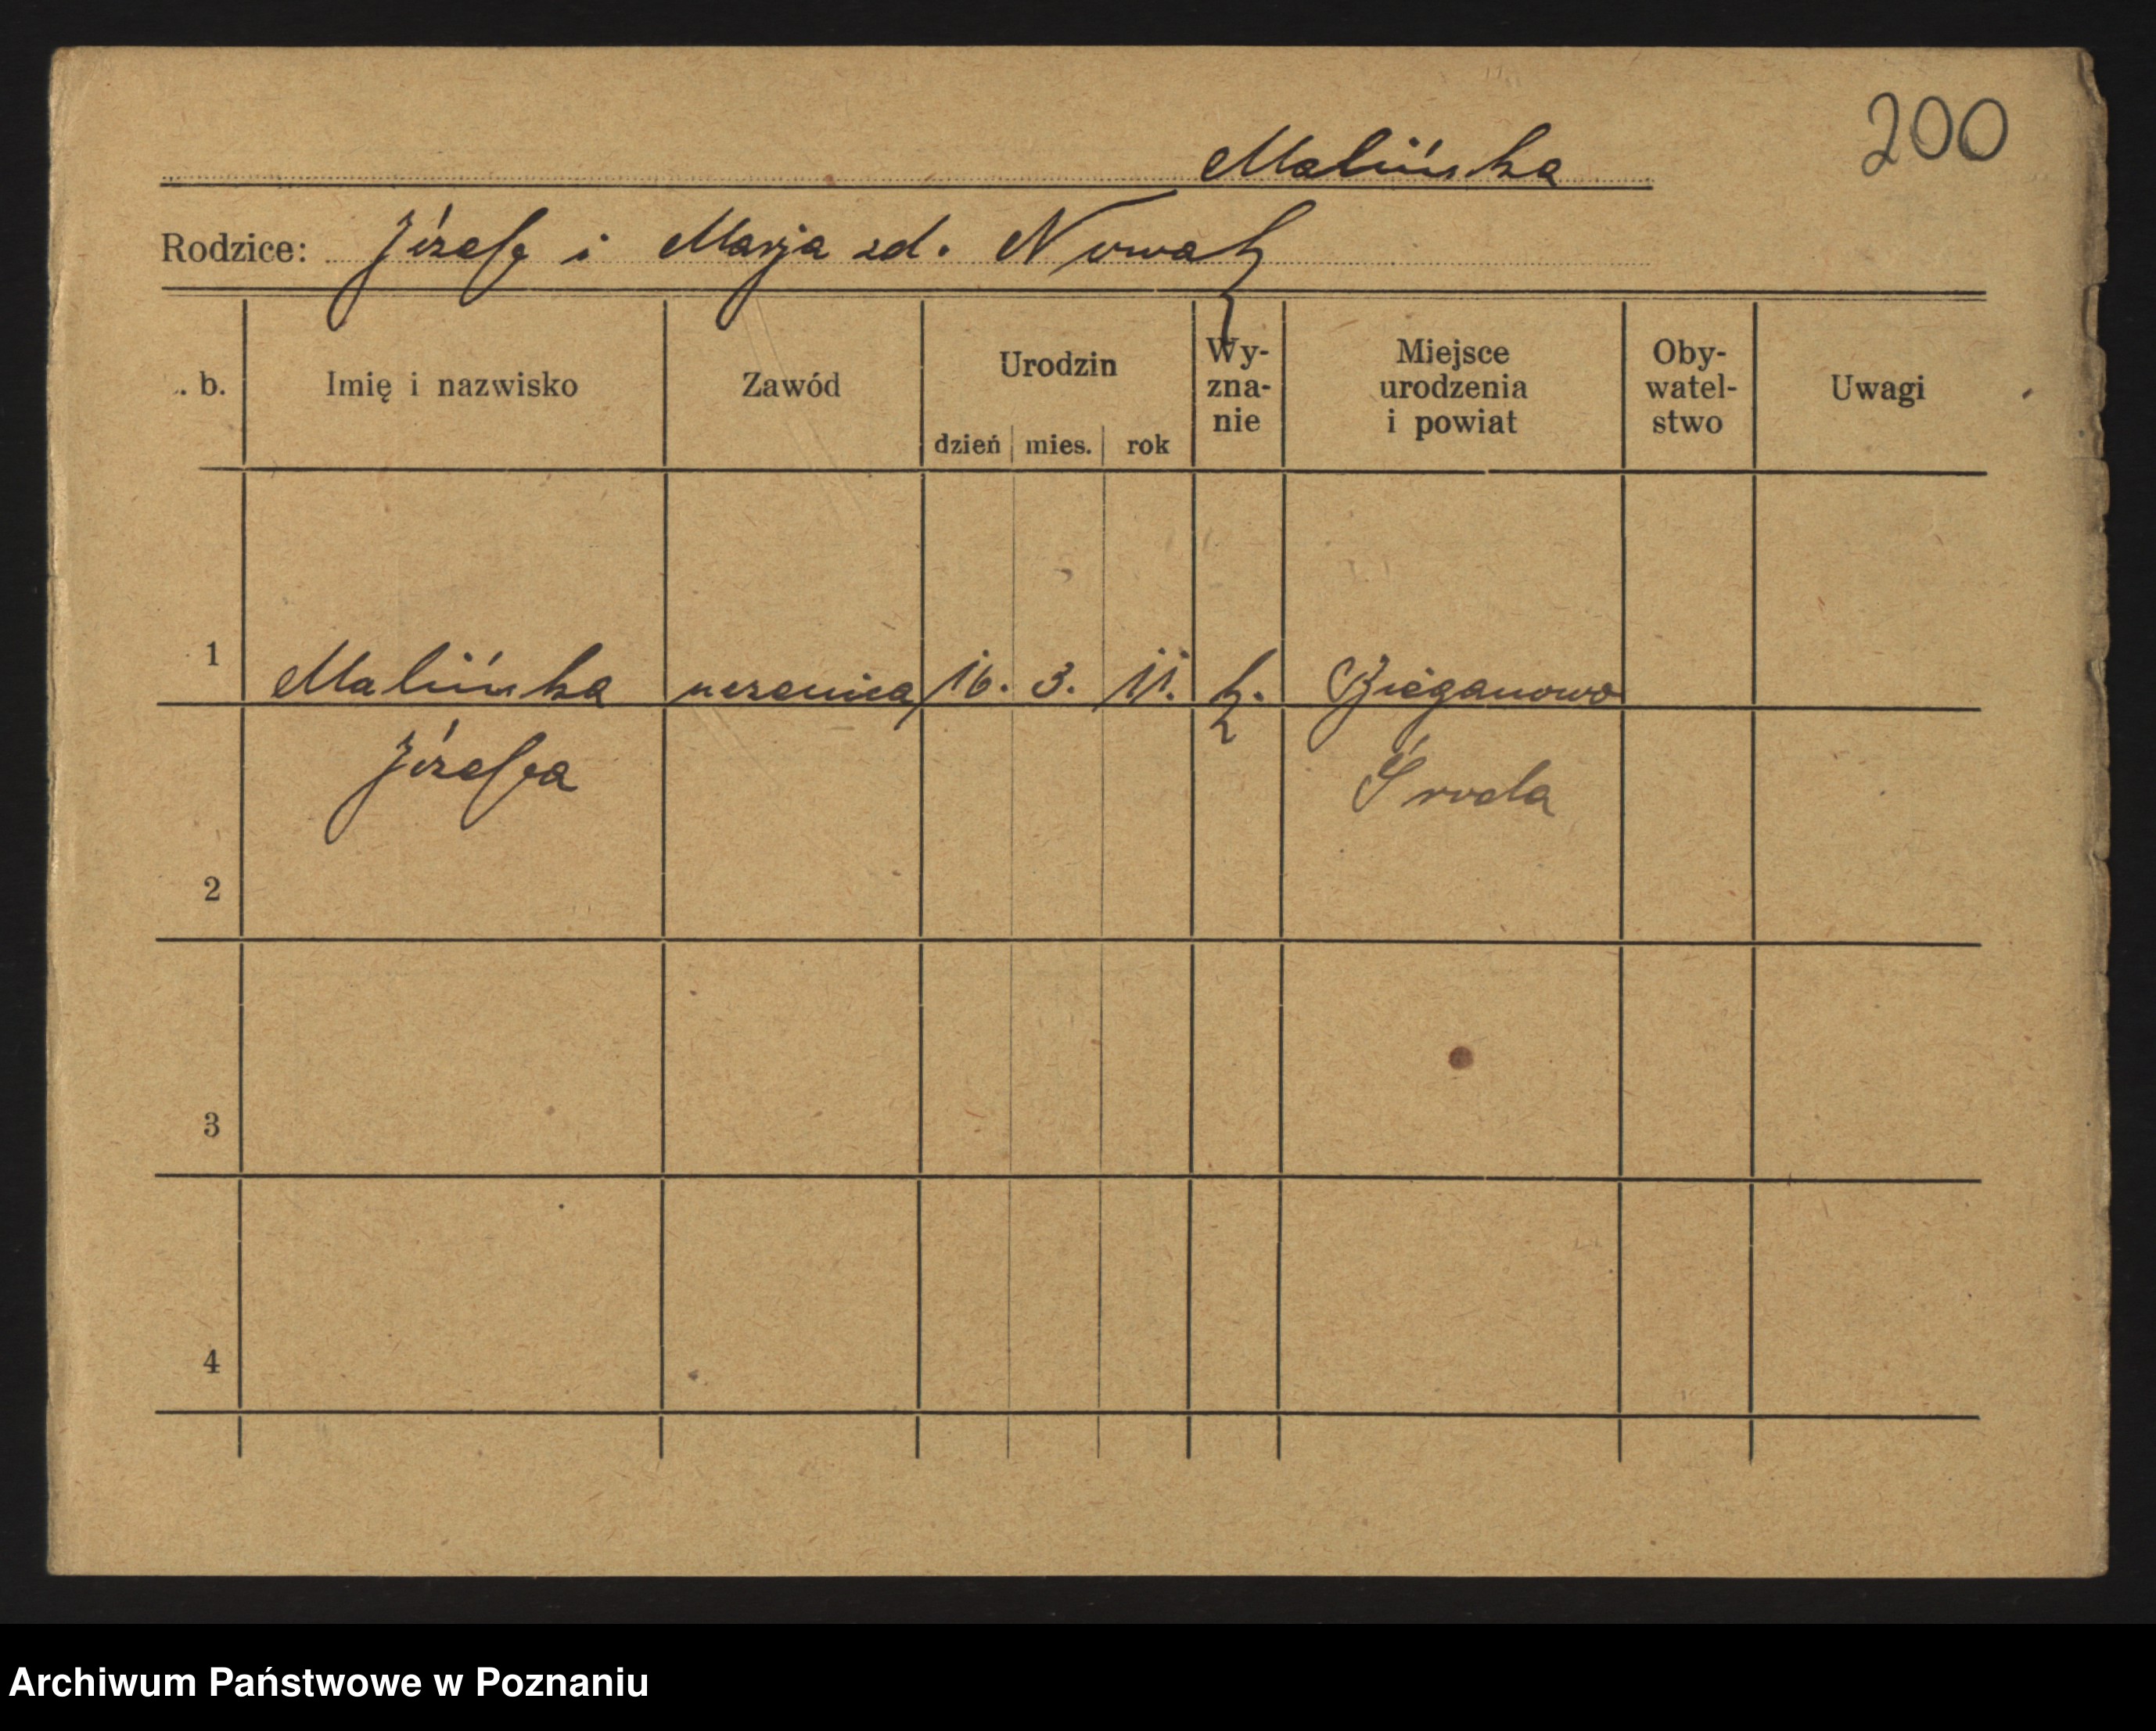 200
Malińska
Rodzice: Józef i Marja zd. Nowak
. b.
Imię i nazwisko
Zawód
Urodzin
dzień mies. rok
Wy-
zna-
nie
Miejsce
urodzenia
i powiat
Oby-
watel-
stwo
Uwagi
1 Malińska uczenica 16. 3. 11. k. Bieganowo
Józefa Środa
2
3
4
Archiwum Państwowe w Poznaniu